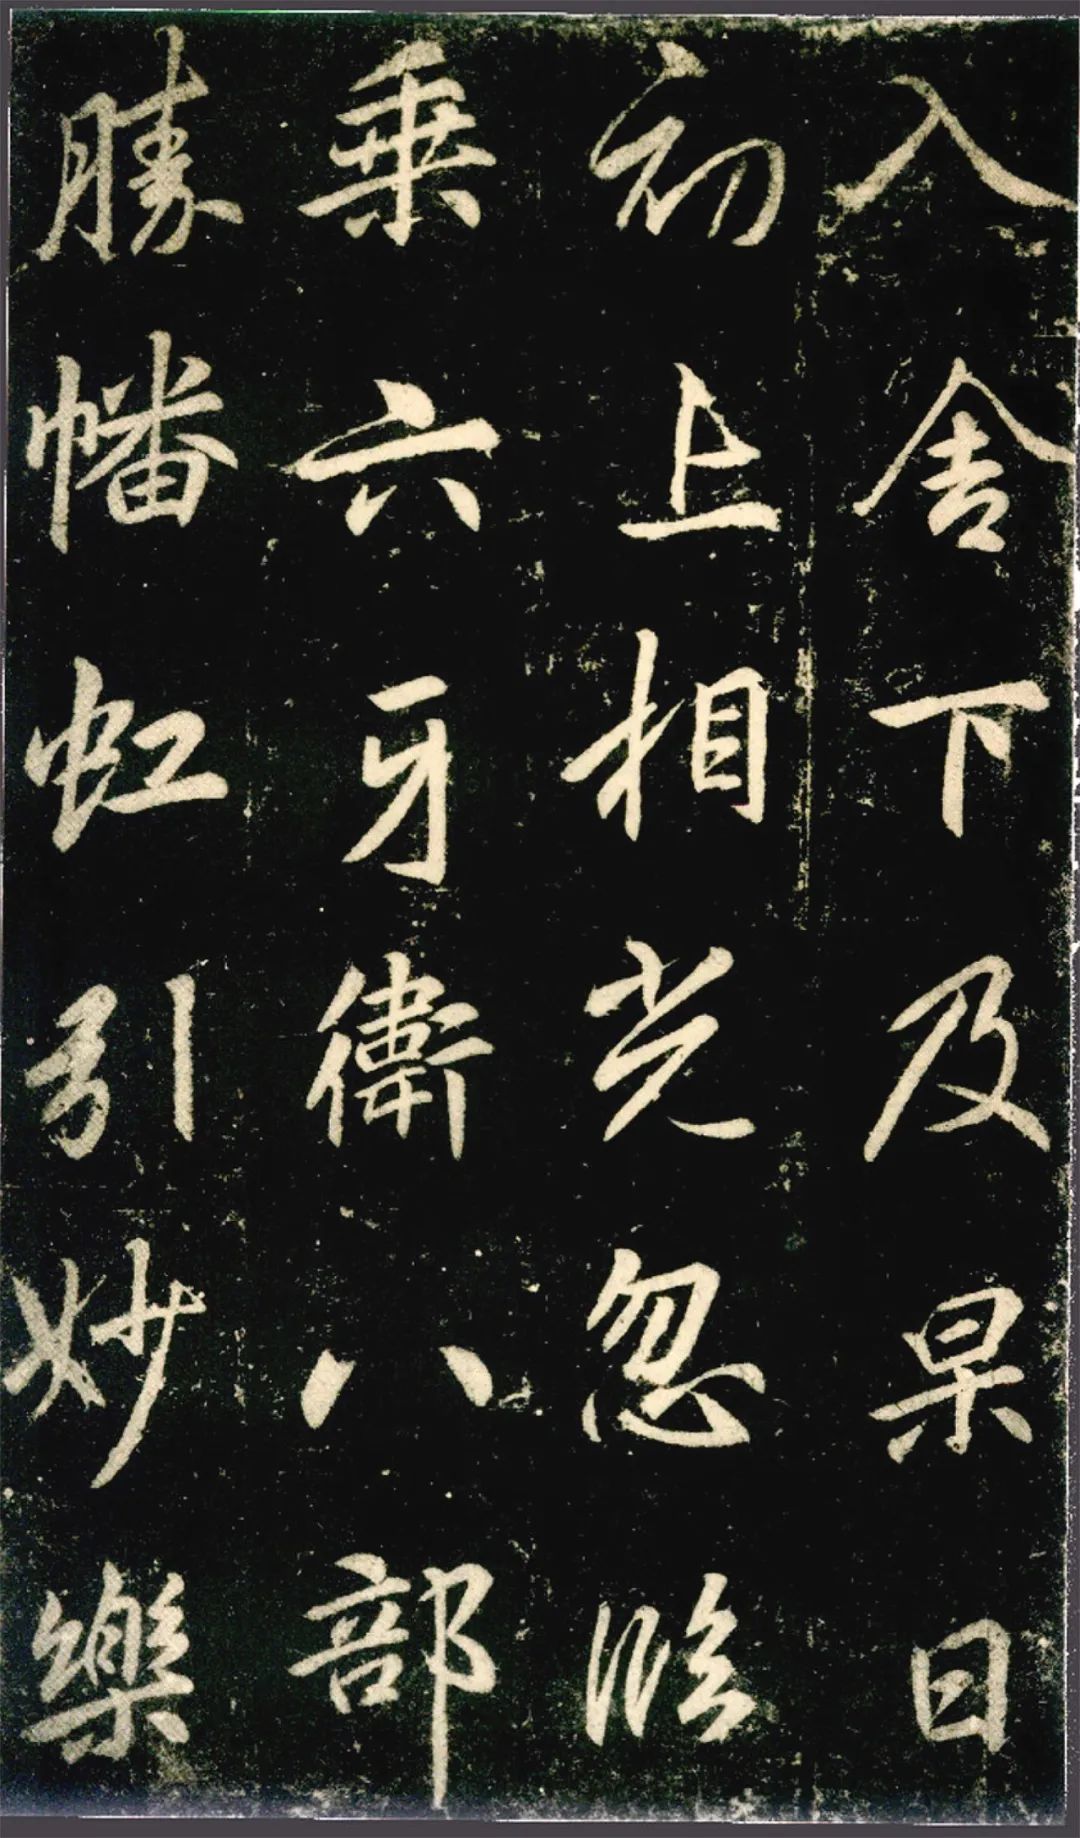 入舍下及杲日
初上相光忽臨
乗六牙衛八部
勝幡虹引妙樂